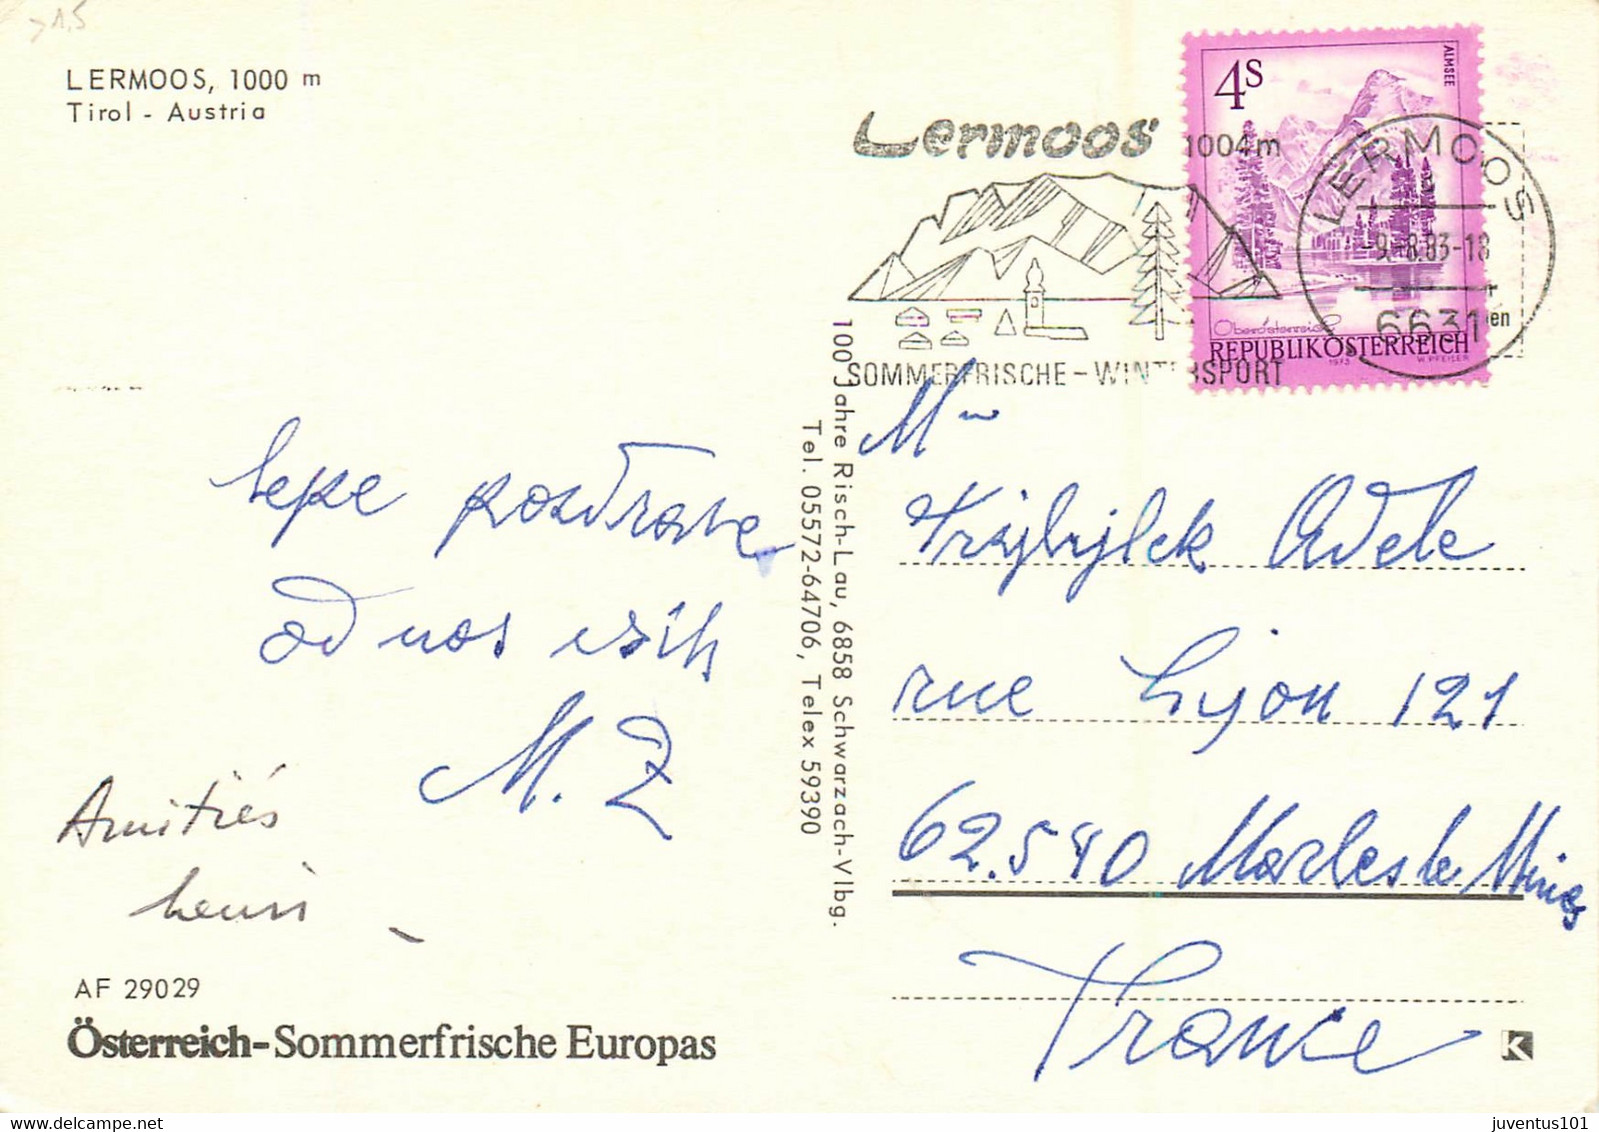 >1,5
LERMOOS, 1000 m
Tirol - Austria
lepe pozdrave
od nas vsih
M. Z
Amitiés
henri
AF 29029
Österreich-Sommerfrische Europas
100 Jahre Risch-Lau, 6858 Schwarzach-Vlbg.
Tel. 05572-64706, Telex 59390
Lermoos 1004m
SOMMERFRISCHE-WINTERSPORT
4S
ALMSEE
Oberösterreich
REPUBLIK ÖSTERREICH
1973 W. PFEILER
LERMOOS
-9.-8.83-18
6631
ien
M
Trajbijlek Adele
rue Lyon 121
62.540 Marles le Mines
France
K
juventus101